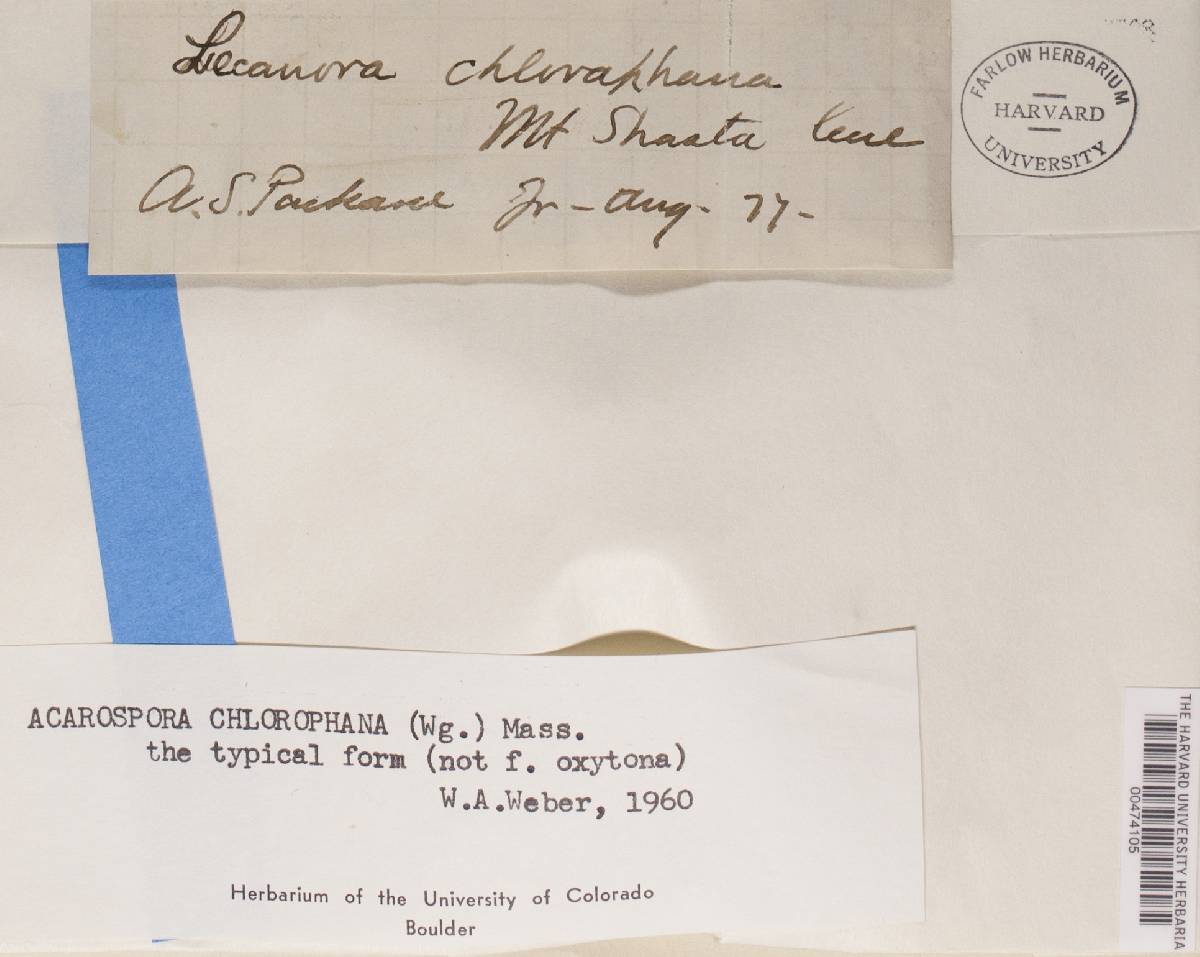 Lecanora chloraphana
Mt Shasta
A. S. Packard Jr - Aug - 77 -
FARLOW HERBARIUM
HARVARD
UNIVERSITY
ACAROSPORA CHLOROPHANA (Wg.) Mass.
the typical form (not f. oxytona)
W.A.Weber, 1960
Herbarium of the University of Colorado
Boulder
THE HARVARD UNIVERSITY HERBARIA
00474105